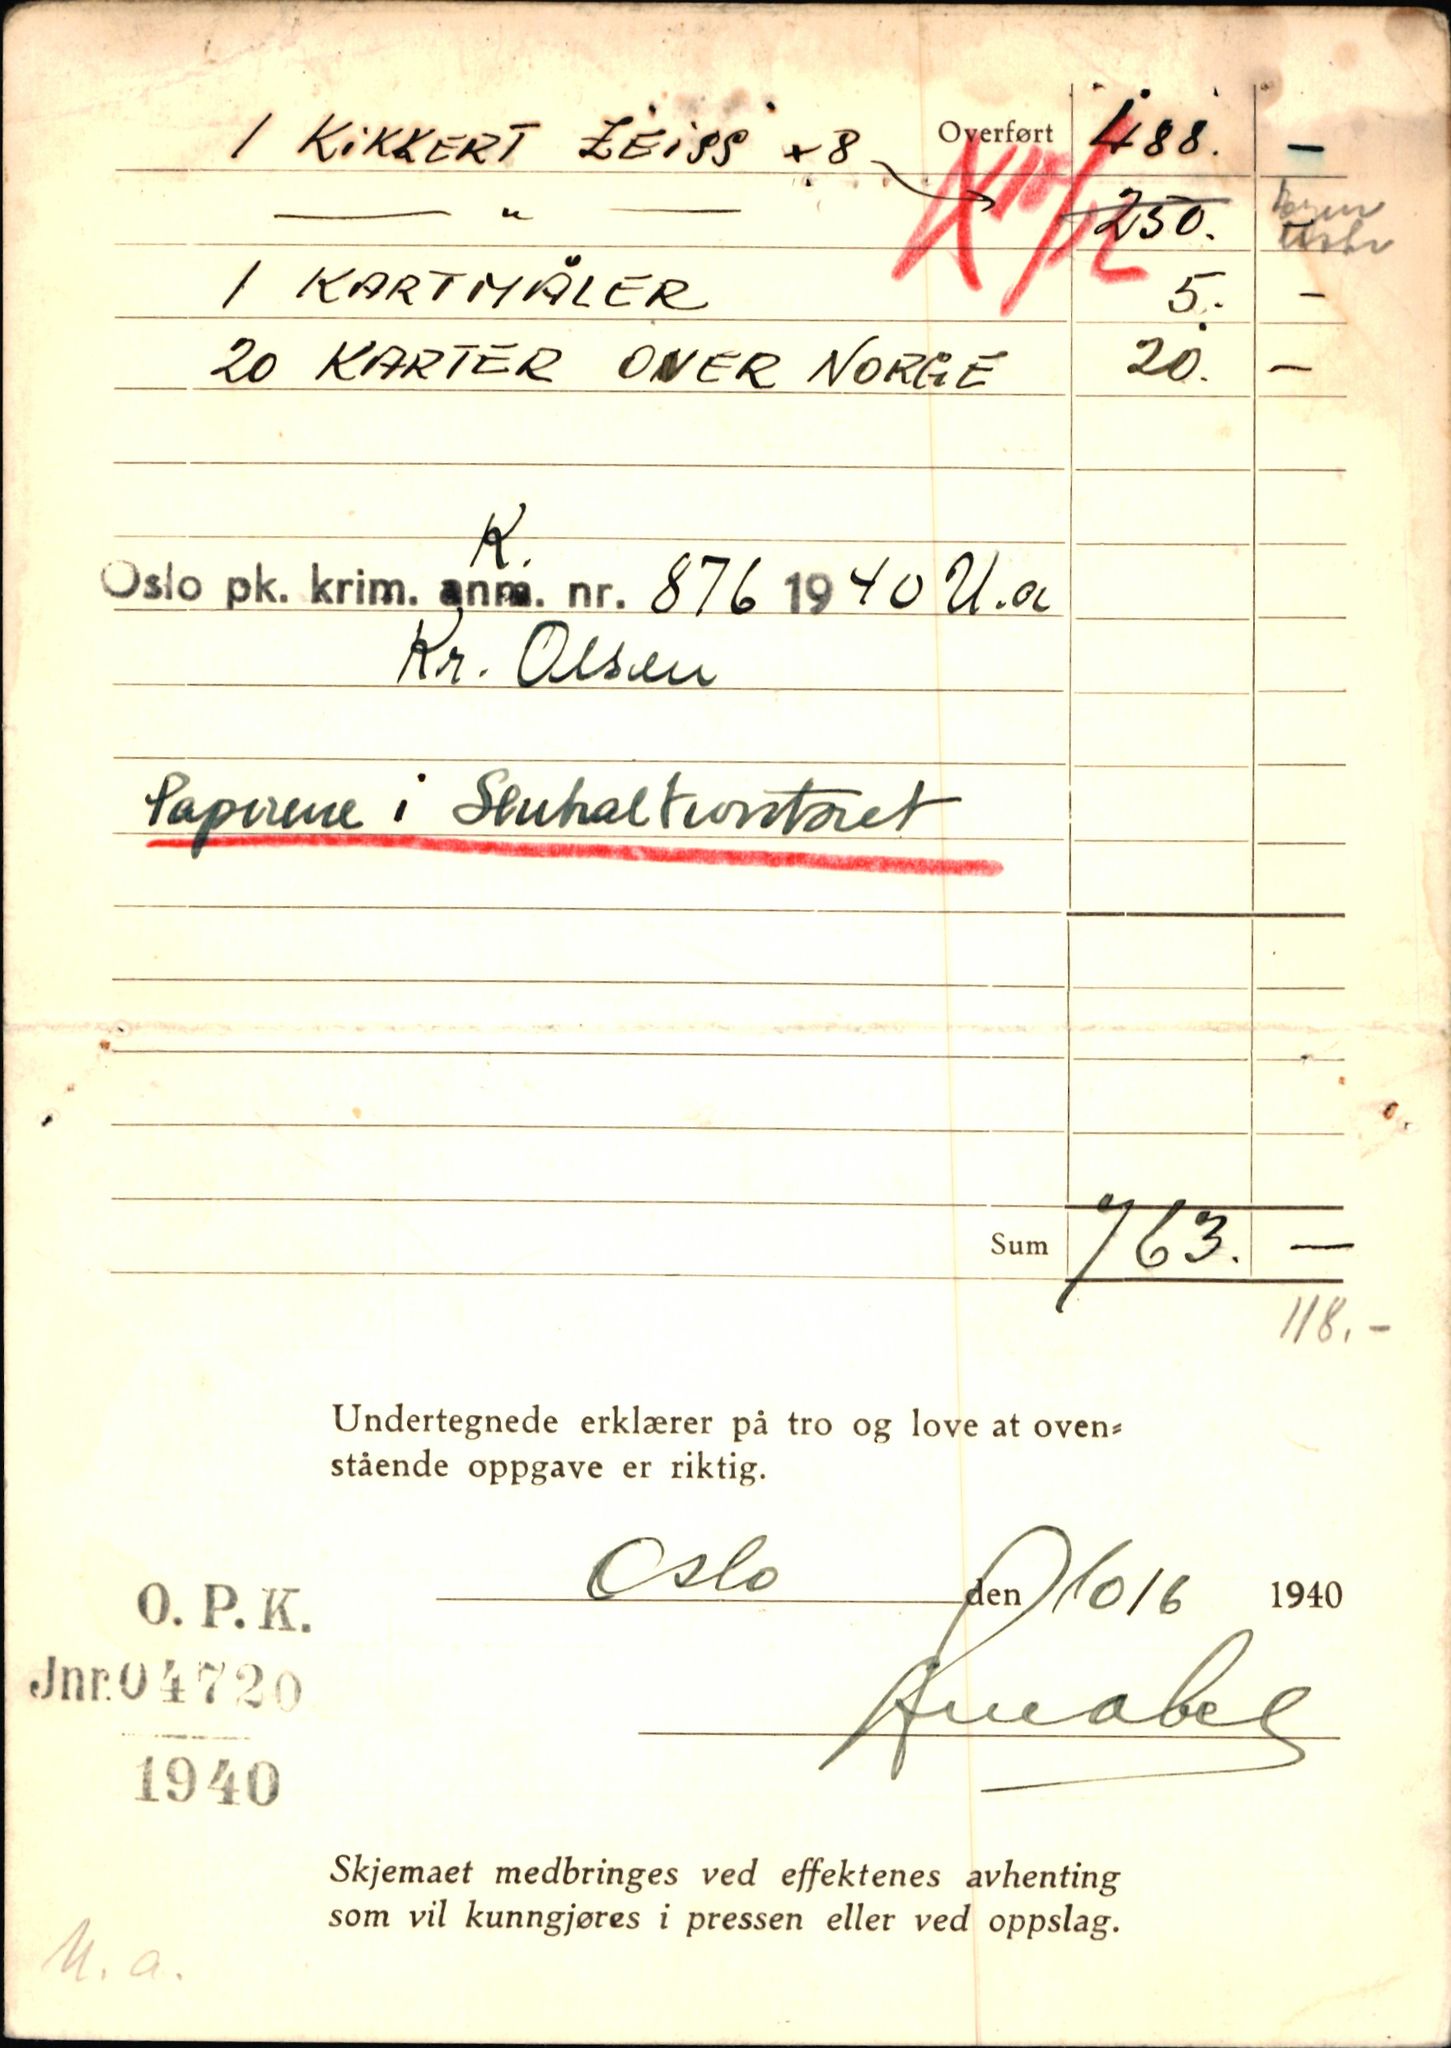 1 KIKKERT ZEISS × 8 Overført 488. —
— " — 250.
1 KARTMÅLER 5. —
20 KARTER OVER NORGE 20. —
K.
Oslo pk. krim. anm. nr. 876 1940 U.a
Kr. Olsen
Papirene i Sentralkontoret
Sum 763. —
118.-
Undertegnede erklærer på tro og love at oven=
stående oppgave er riktig.
Oslo den 10/6 1940
O. P. K.
Jnr. 04720
1940
Skjemaet medbringes ved effektenes avhenting
som vil kunngjøres i pressen eller ved oppslag.
U. a.